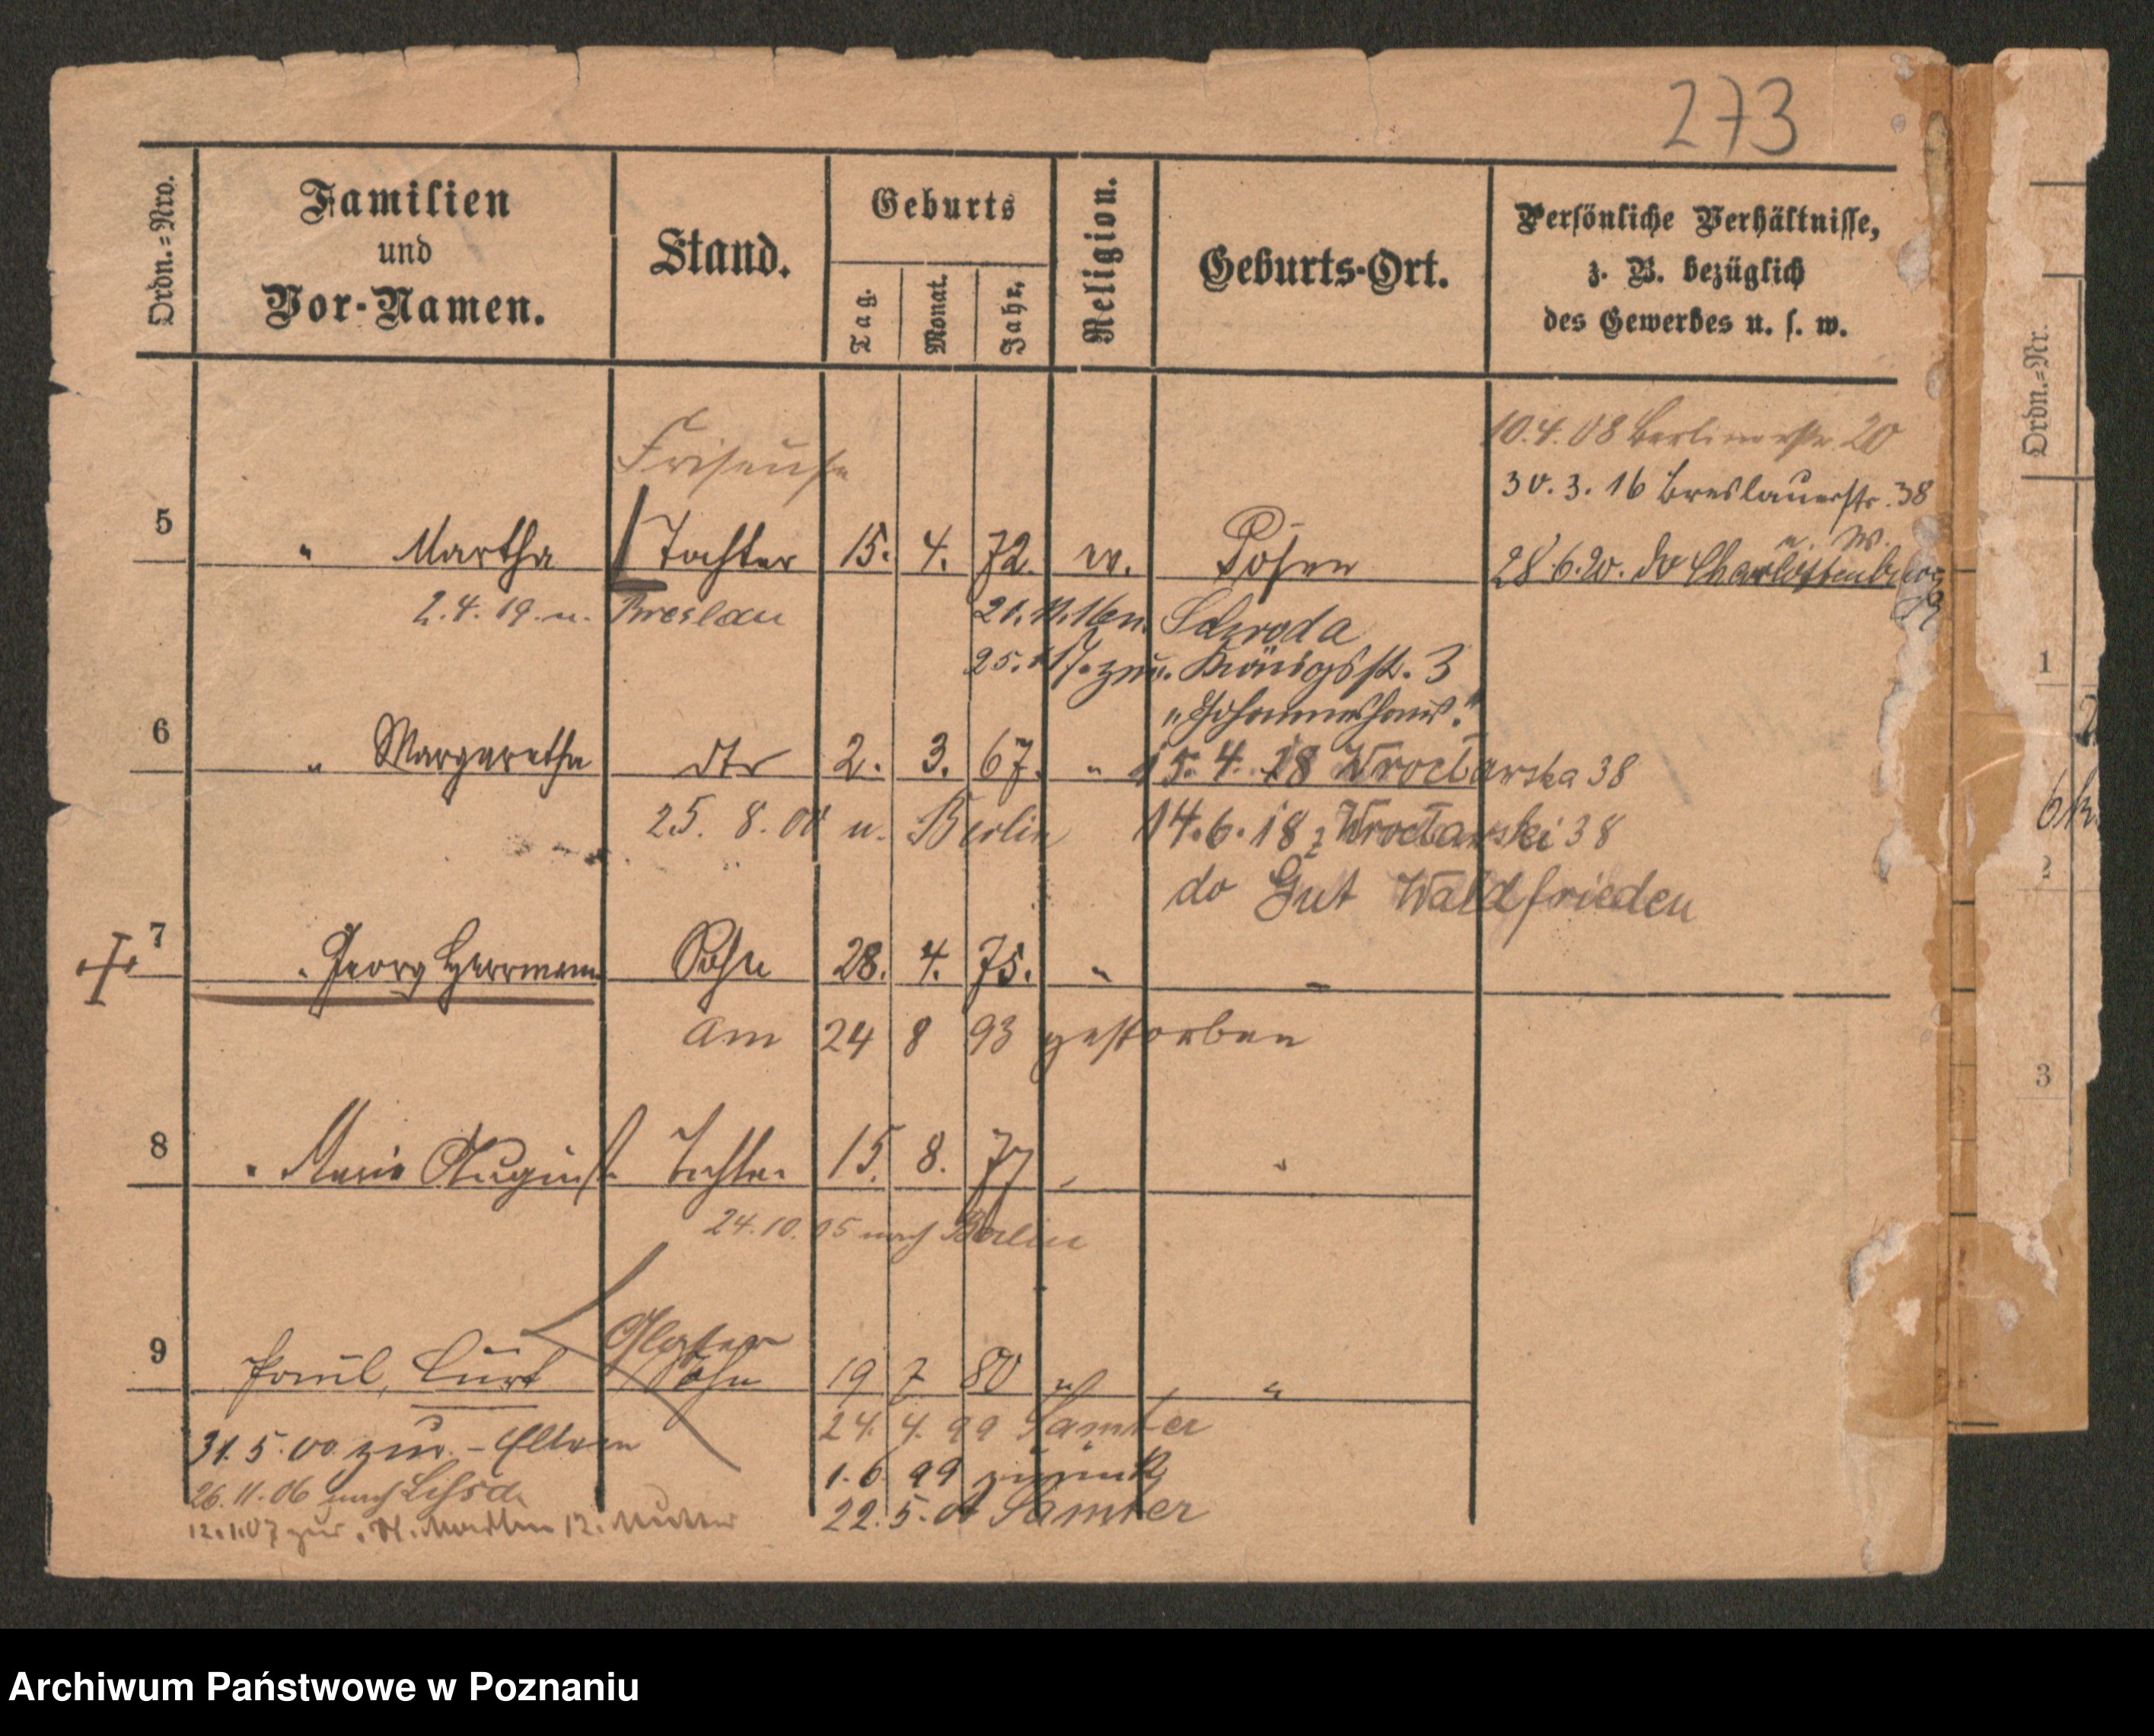 273
Ordn.=Nro.
Familien
und
Vor-Namen.
Stand.
Geburts
Tag.
Monat.
Jahr.
Religion.
Geburts-Ort.
Persönliche Verhältnisse,
z. B. bezüglich
des Gewerbes u. s. w.
10.4.08 Berlinerstr. 20
Friseuse
30.3.16 Breslauerstr. 38
5 " Martha Tochter 15. 4. 72. Posen
28.6.20. do Charlottenburg
2.4.19. n. Breslau
21.11.16 n. Schroda
zur. Königsstr. 3
"Johanneshaus."
6 " Margarethe dto 2. 3. 67. " 15. 4. 18 Wrocławska 38
25. 8. 00 n. Berlin
14.6.18 z Wrocławski 38
do Gut Waldfrieden
7 " Georg Herrmann Sohn 28. 4. 75. " "
am 24 8 93 gestorben
8 " Marie August. Tochter 15. 8. 77 " "
24.10.05 nach Berlin
9 Paul, Curt Sohn 19 7 80 " "
24. 4. 99 Samter
31.5.00 zur. - Eltern
1. 6. 99 zurück
26.11.06 nach
22. 5. Samter
12.1.07 zur. Mutter
Ordn.=Nr.
1
2
3
Archiwum Państwowe w Poznaniu